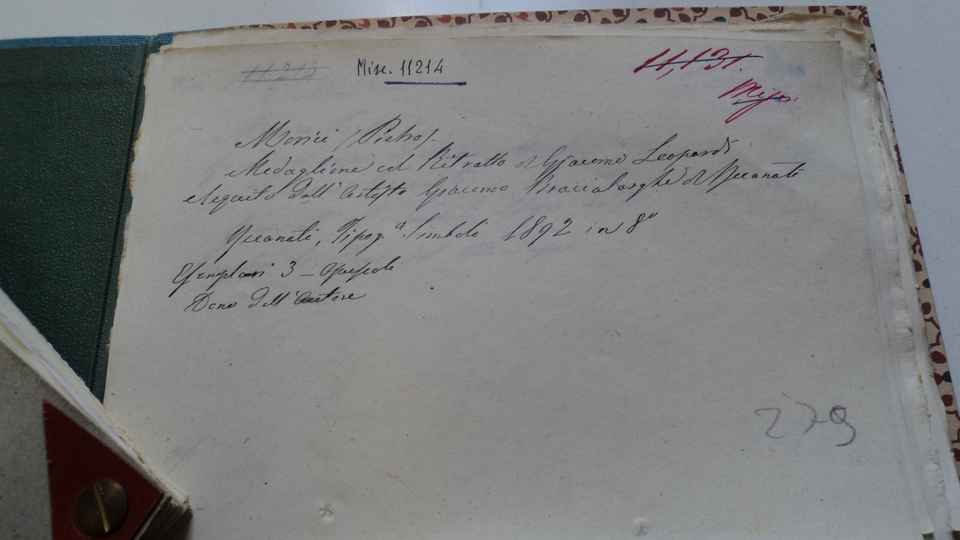 11,213
Misc. 11214
11,131.
Misc.
Morici (Pietro).
Medaglione col Ritratto di Giacomo Leopardi
eseguito dall'artista Giacomo Bracialarghe di Recanati
Recanati, Tipog.ª Simboli 1892 in 8°
Esemplari 3 _ opuscolo
Dono dell'Autore
279